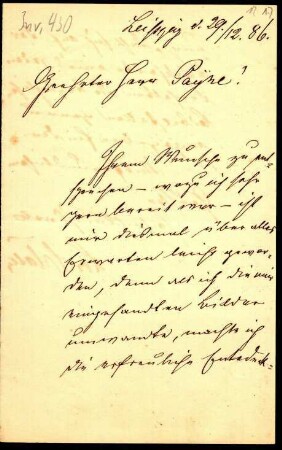 Inv. 430
Leipzig d. 29/12. 86.
Geehrter Herr Payne!
Ihrem Wunsche zu ent-
sprechen – wozu ich sehr
gern bereit war – ist
mir diesmal über alles
Erwarten leicht gewor-
den, denn als ich die mir
eingesandten Bilder
umwandte, machte ich
die erfreuliche Entdek-